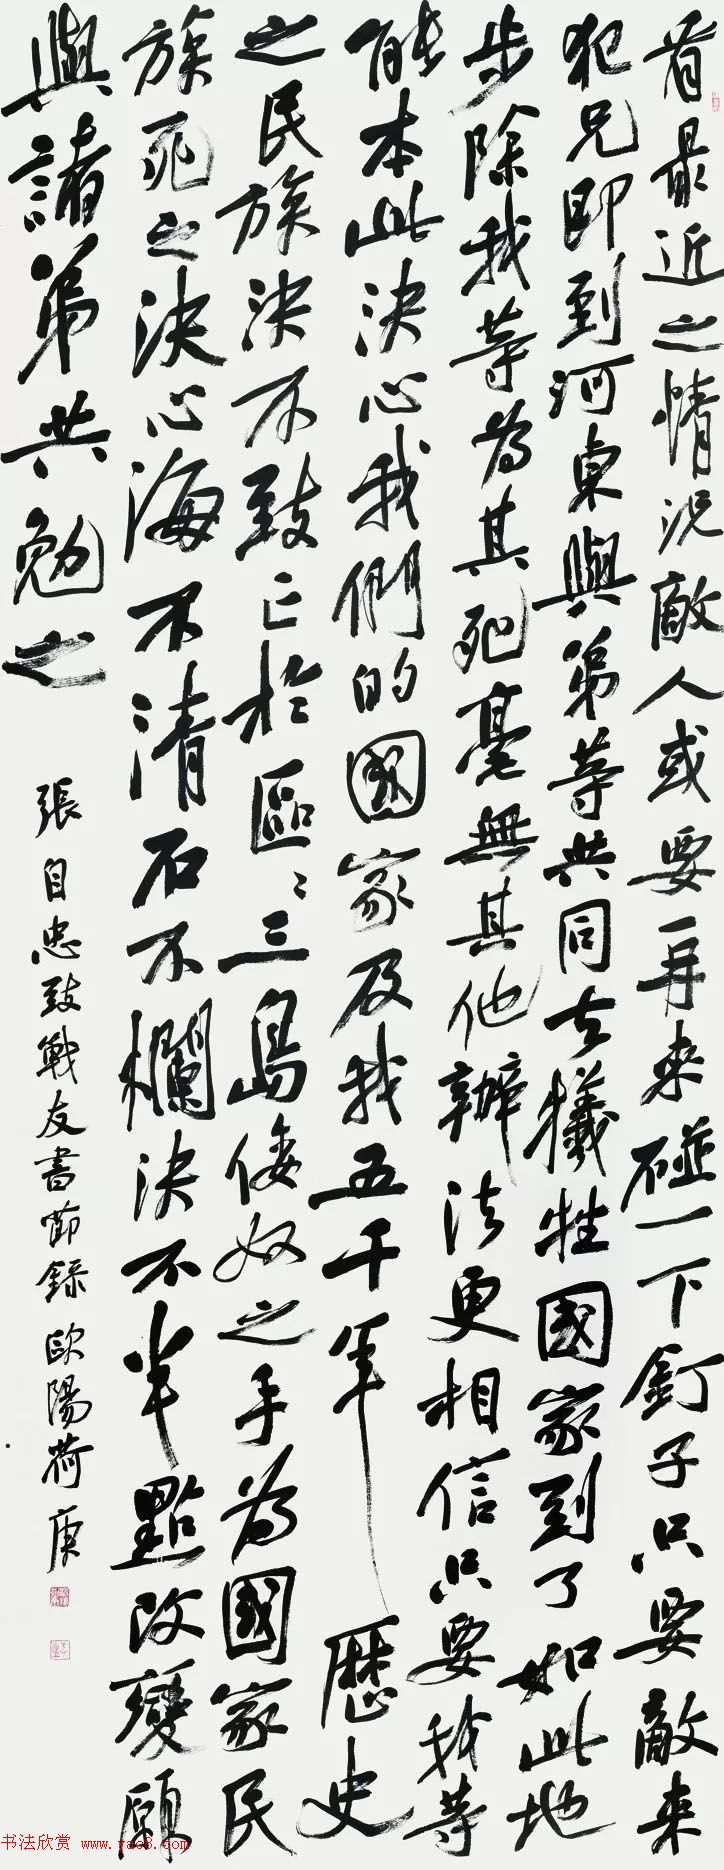 看最近之情況敵人或要再来碰一下釘子只要敵来
犯兄即到河東與弟等共同去犧牲國家到了如此地
步除我等為其死毫無其他辦法更相信只要我等
能本此決心我們的國家及我五千年歷史
之民族決不致亡於區々三島倭奴之手為國家民
族死之決心海不清石不欄決不半點改變願
與諸弟共勉之
張自忠致戰友書節錄 歐陽荷庚
书法欣赏 www.yac8.com